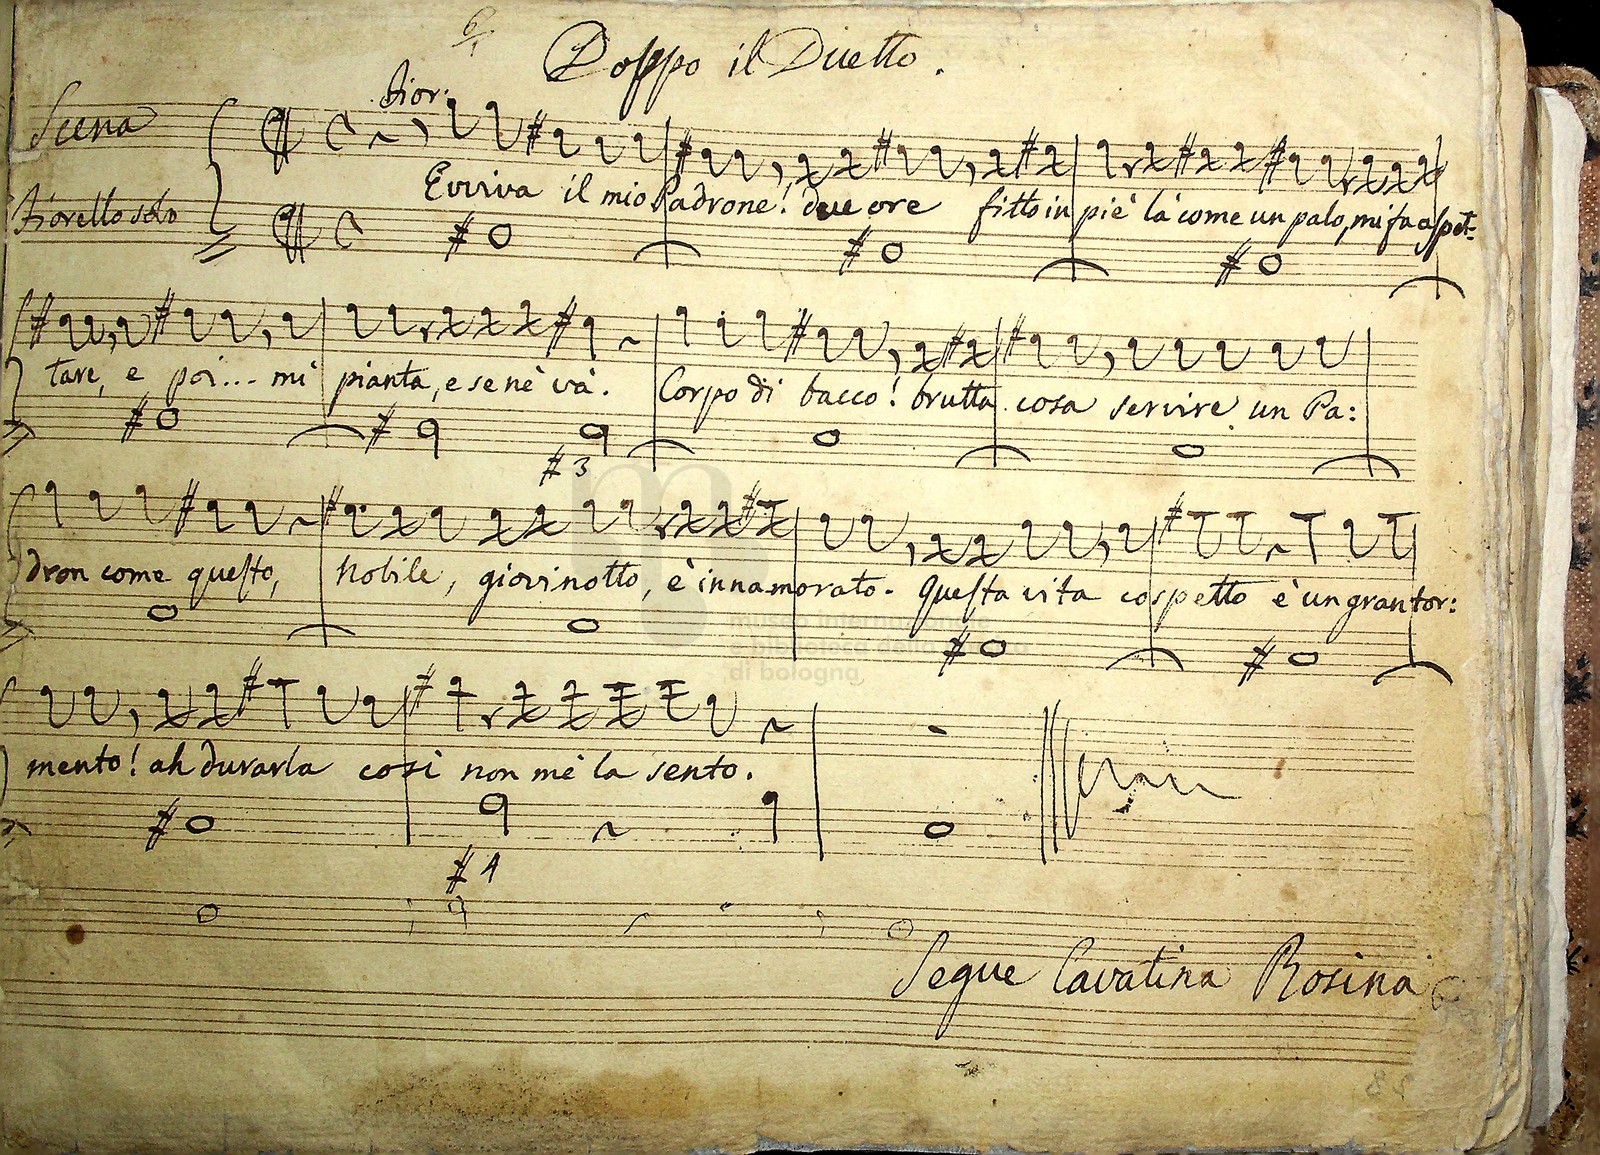 6/1
Doppo il Duetto.
Scena
Fior:
Evviva il mio Padrone! due ore fitto in piè là come un palo, mi fa aspet-
Fiorello solo
tare, e poi... mi pianta, e se nè và. Corpo di bacco! brutta cosa servire un Pa:
#3
dron come questo, Nobile, giovinotto, è innamorato. Questa vita cospetto è un gran tor:
museo internazionale
e biblioteca della musica
di bologna
mento! ah durarla così non mè la sento.
#4
Segue Cavatina Rosina